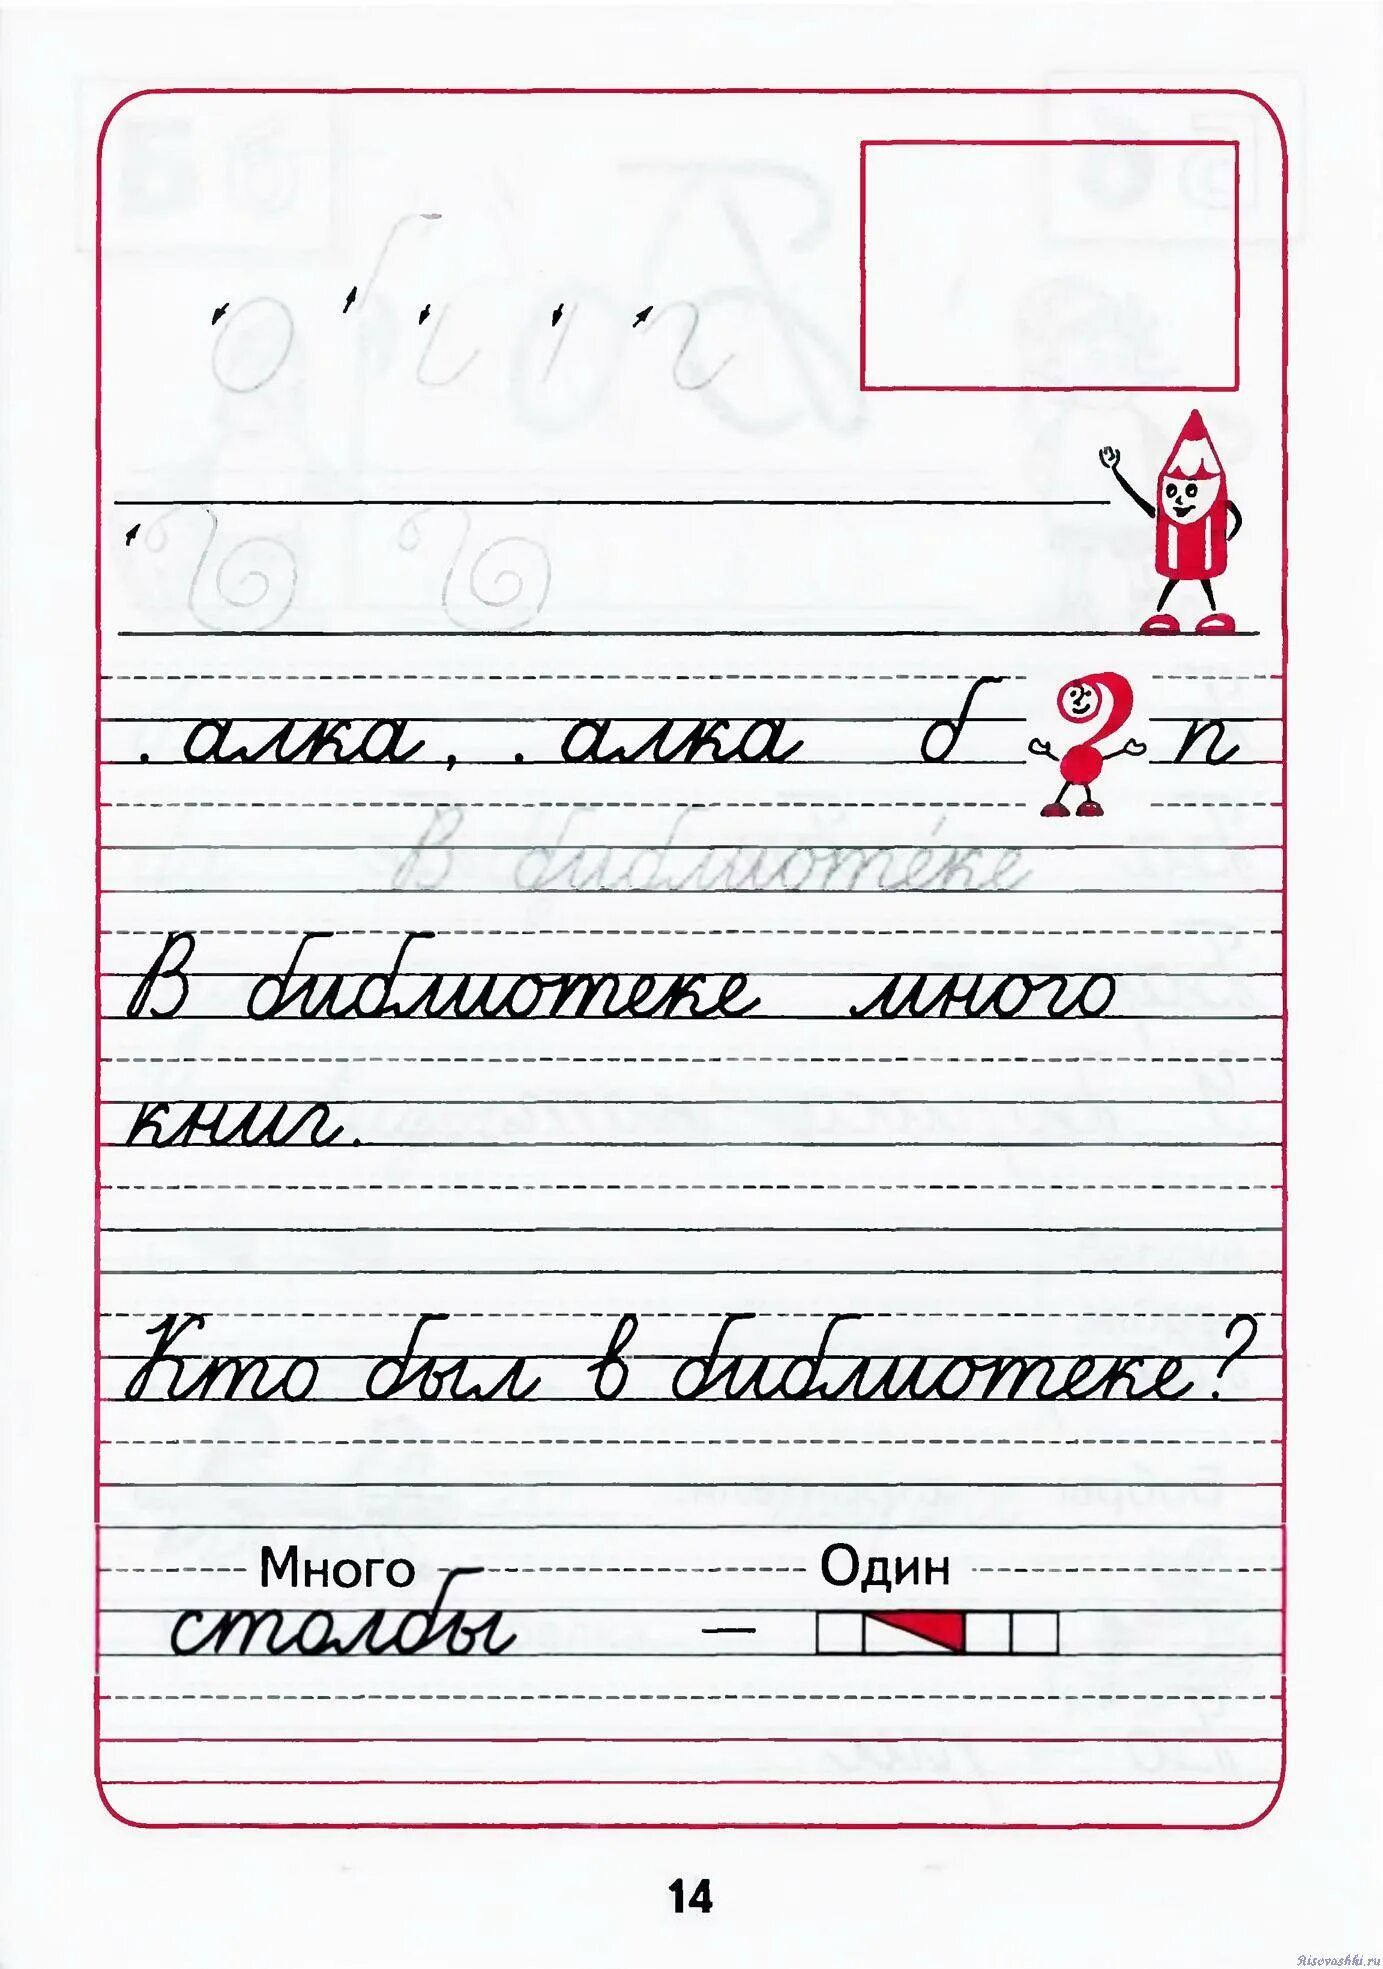 . алка, . алка б ? п
В библиоте́ке
В библиотеке много
книг.
Кто был в библиотеке?
Много Один
столбы —
14
Risovashki.ru